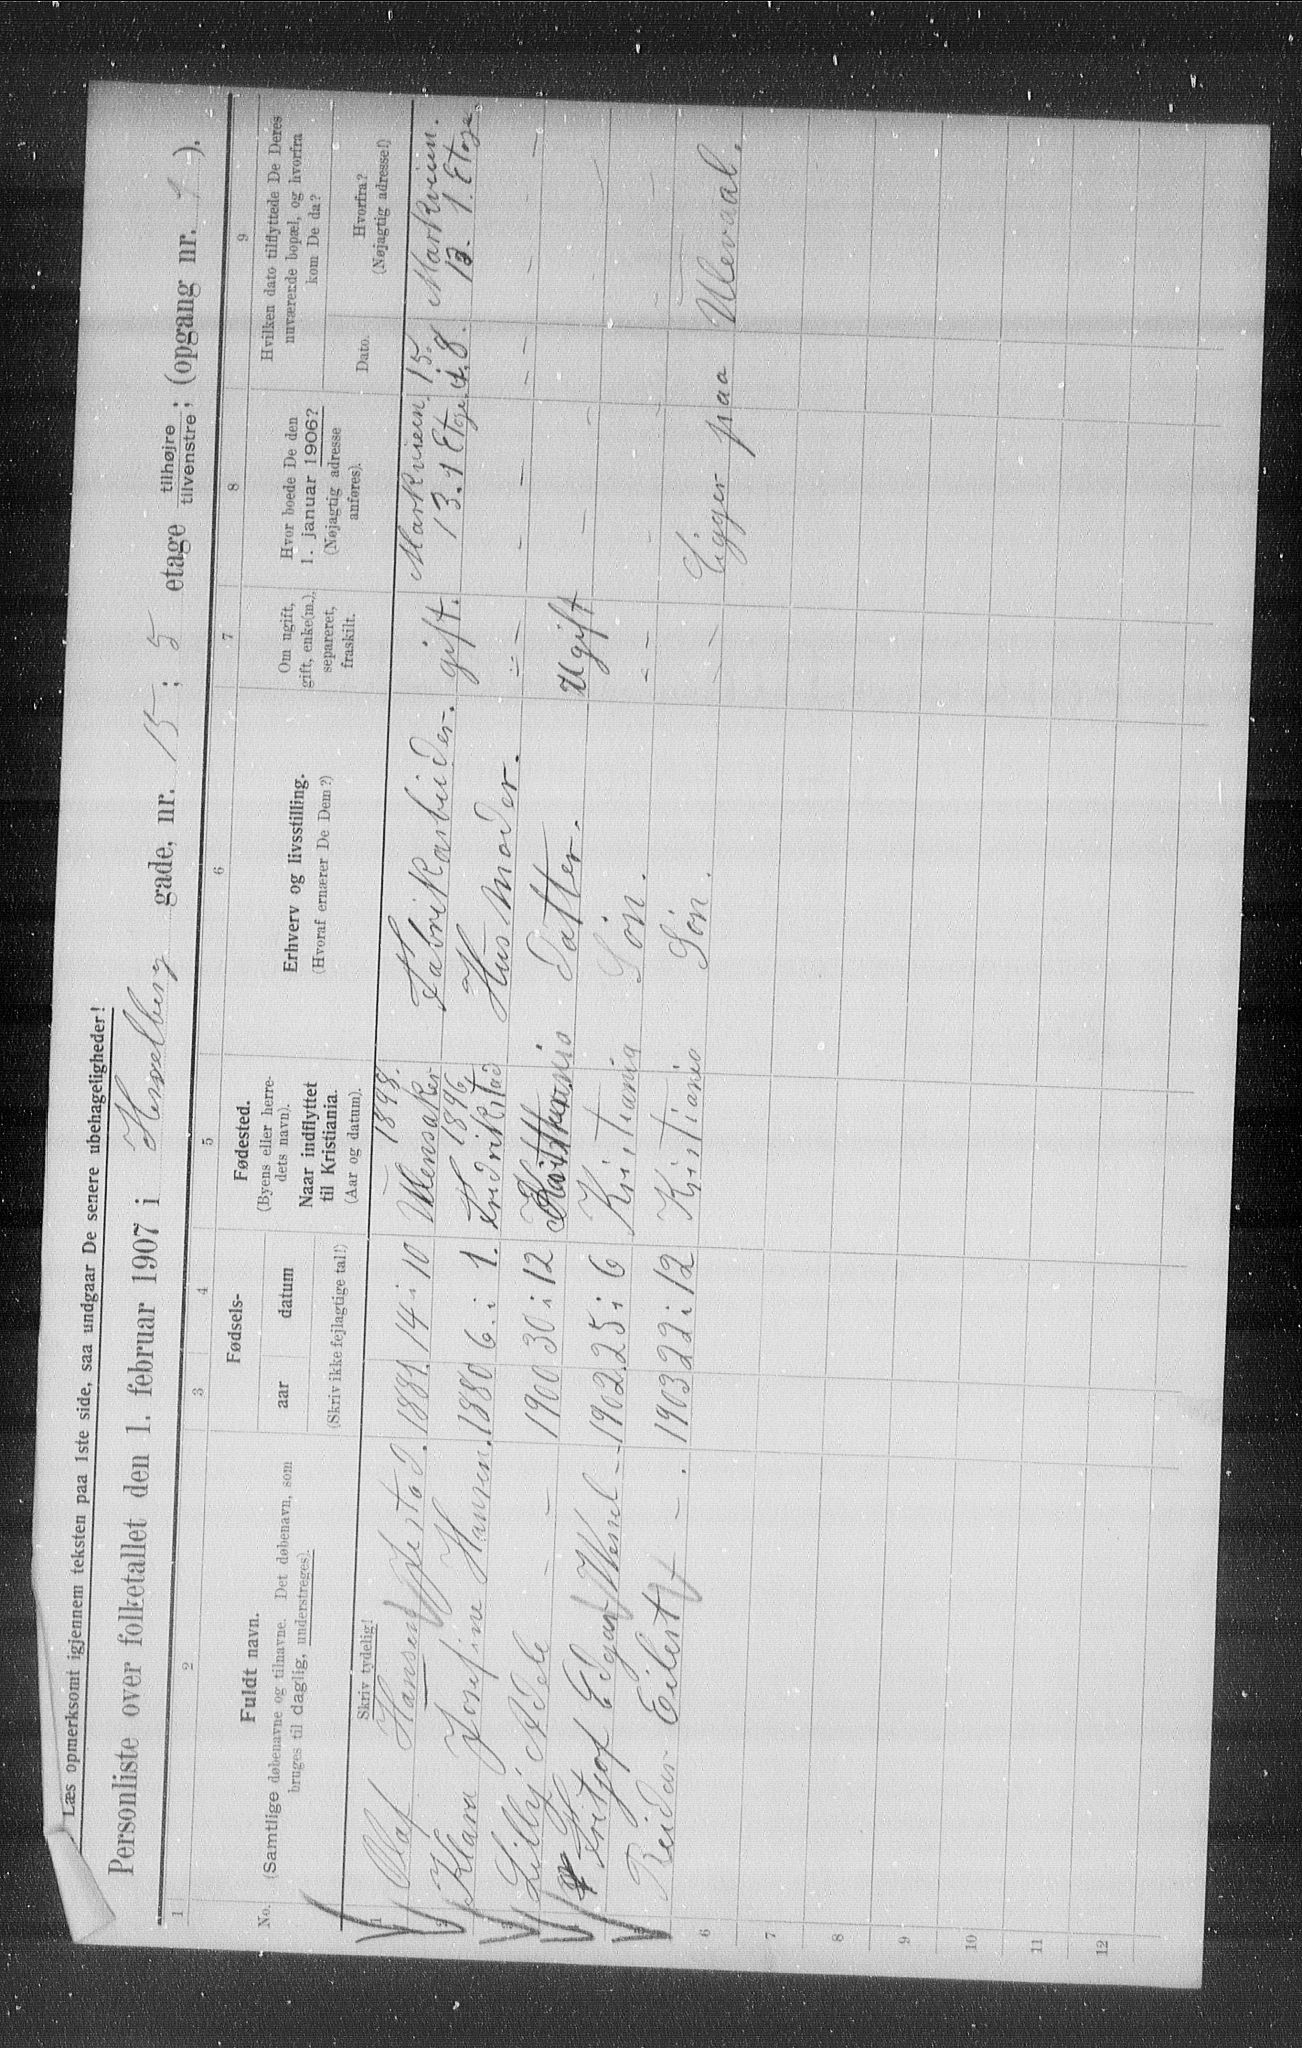 Læs opmerksomt igjennem teksten paa 1ste side, saa undgaar De senere ubehageligheder!
Personliste over folketallet den 1. februar 1907 i Herselberg gade, nr. 15; 5 etage tilhøjre/tilvenstre; (opgang nr. 1).
1 2 3 4 5 6 7 8 9
No.
Fuldt navn.
(Samtlige døbenavne og tilnavne. Det døbenavn, som
bruges til daglig, understreges).
Skriv tydelig!
Fødsels-
aar datum
(Skriv ikke fejlagtige tal!)
Fødested.
(Byens eller herre-
dets navn).
Naar indflyttet
til Kristiania.
(Aar og datum).
Erhverv og livsstilling.
(Hvoraf ernærer De Dem?)
Om ugift,
gift, enke(m.),
separeret,
fraskilt.
Hvor boede De den
1. januar 1906?
(Nøjagtig adresse
anføres).
Hvilken dato tilflyttede De Deres
nuværende bopæl, og hvorfra
kom De da?
Dato.
Hvorfra?
(Nøjagtig adresse!)
1898. 15. Markveien.
1 Olaf Hansen 1881. 14 i 10 Ullensaker Fabrikarbeider. gift. Markveien 13. 1 Etage i 8. 13. 1. Etage
1896
2 Klara Josefine Hansen. 1880 6. i 1. Fredrikstad Husmoder. - -
3 Lilly Adele - - 1900 30 i 12 Datter. Ugift - -
4 Fritjof Edgar Wessel - - 1902. 25 i 6 Kristiania Søn. - -
5 Reidar Eilert - - 1903 22 i 12 Kristiania Søn. - - Ligger paa Ulevaal.
6
7
8
9
10
11
12